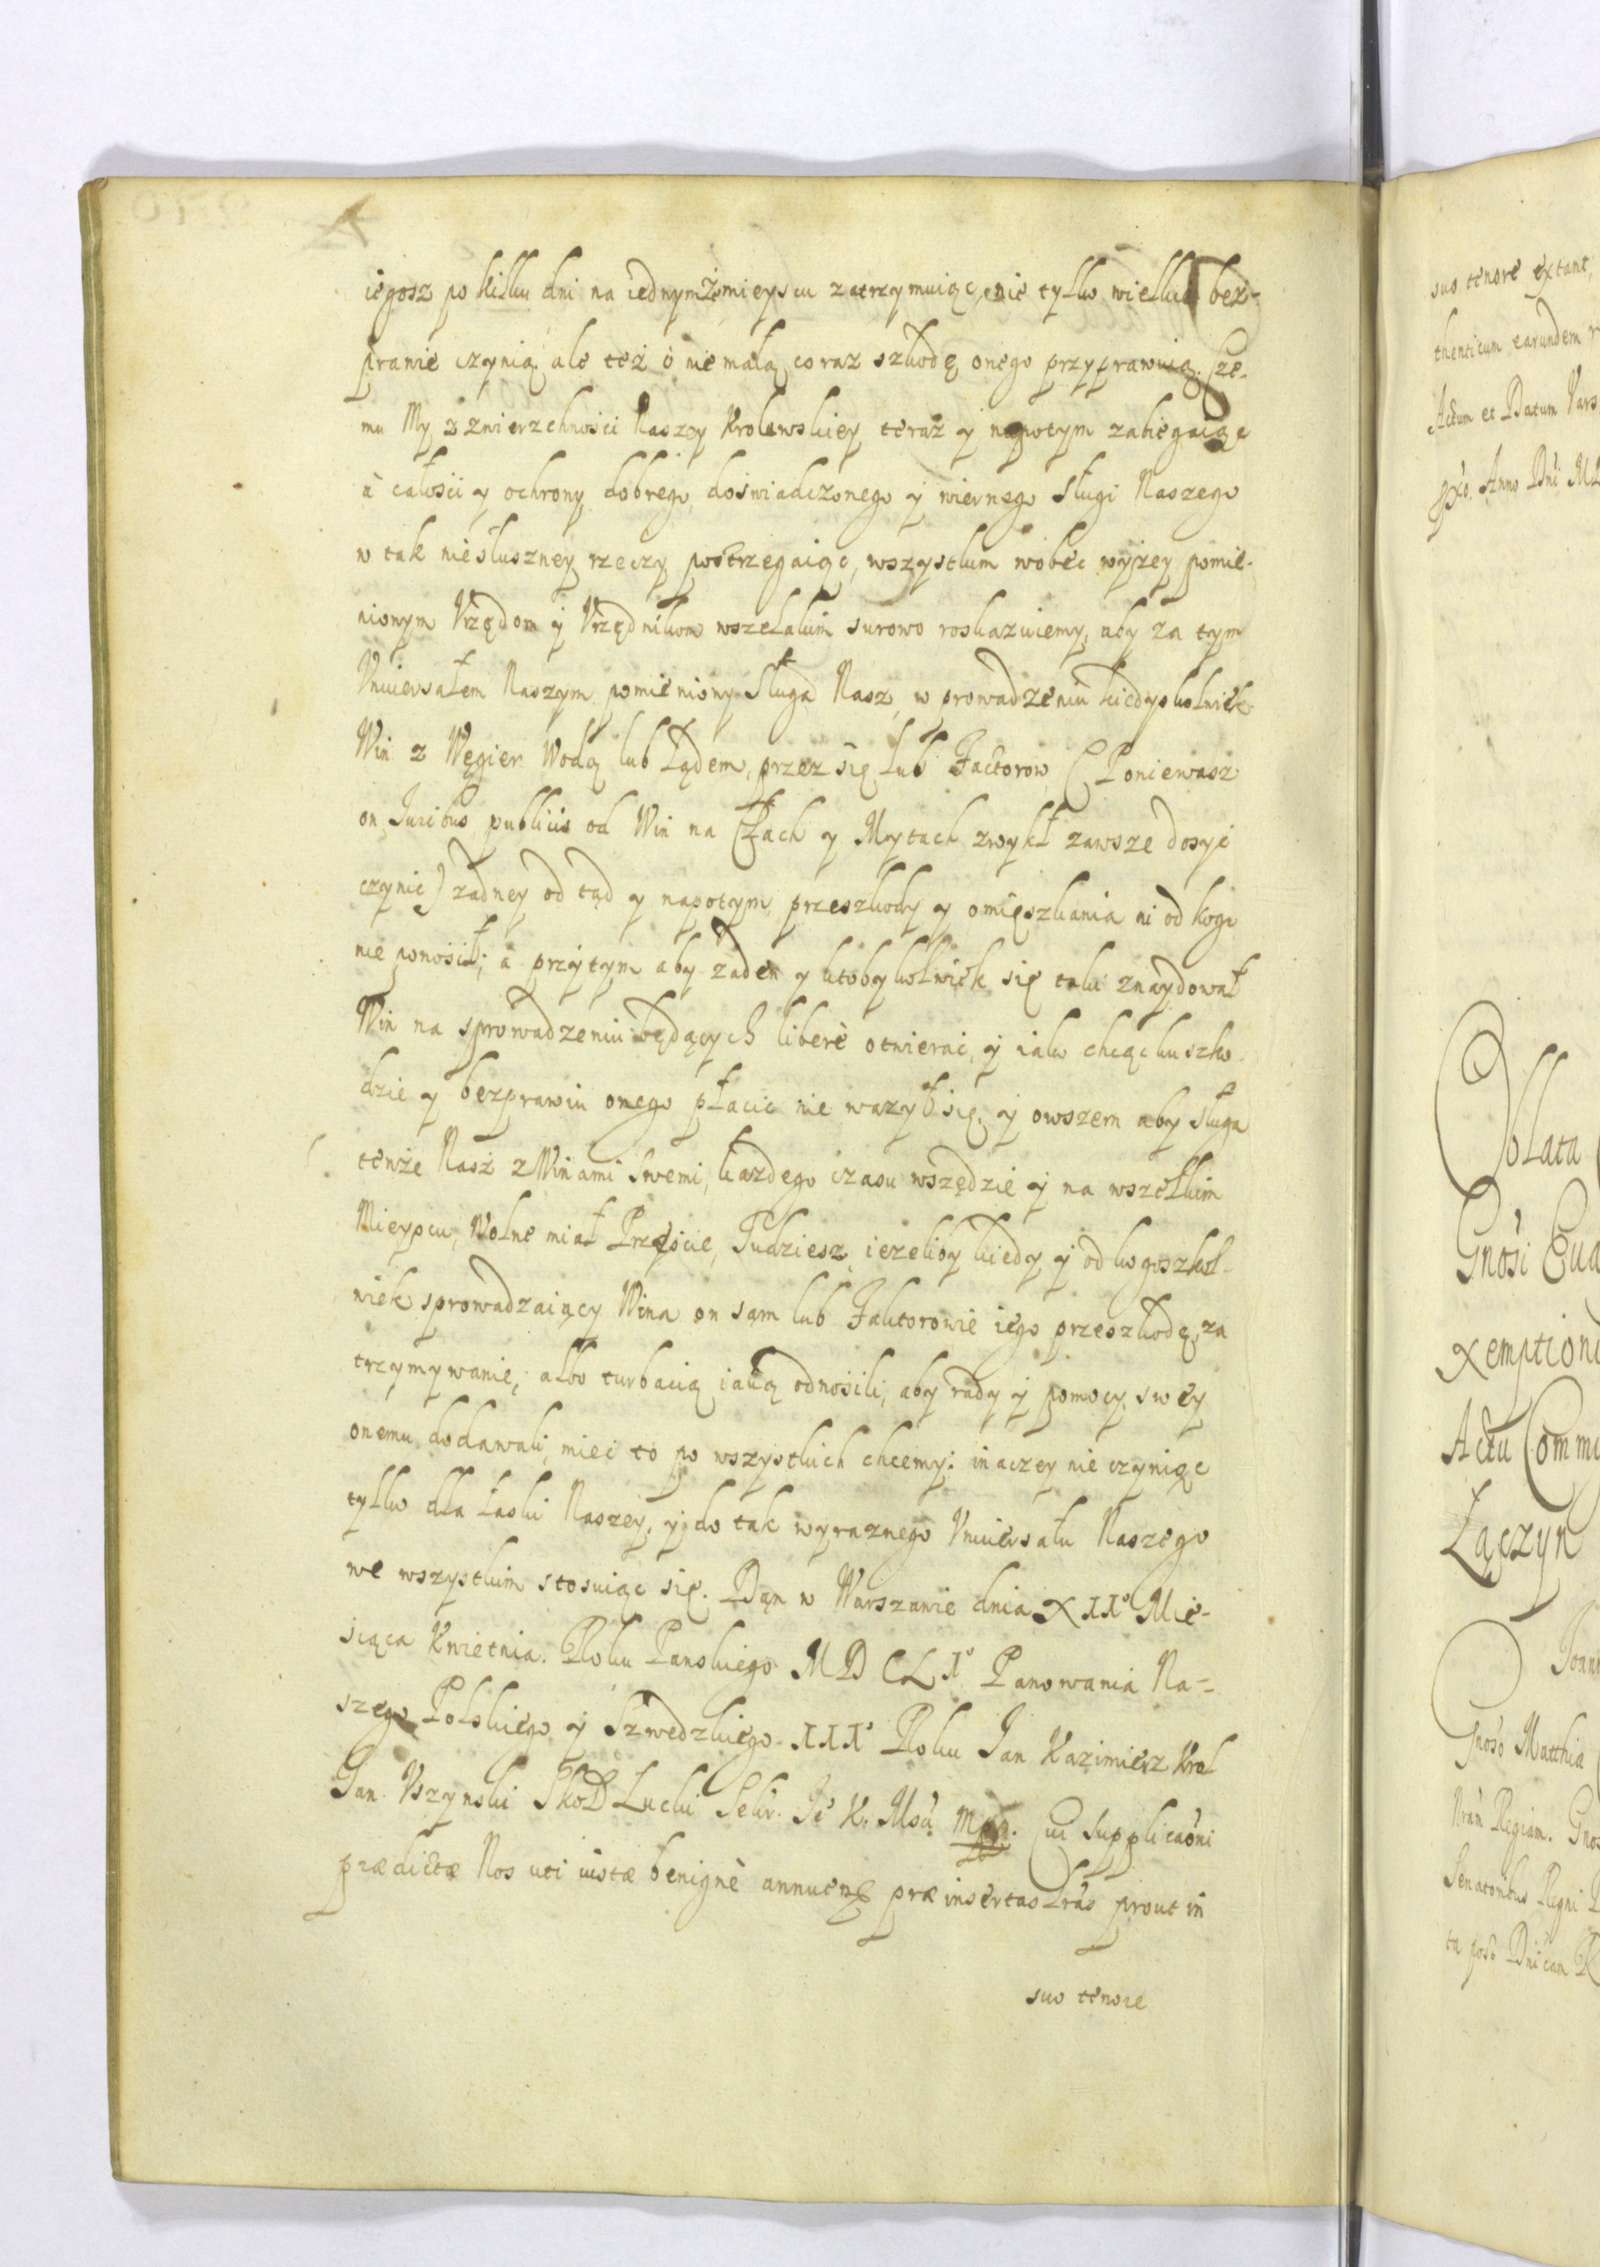 iegosz po kilku dni na iednymże mieyscu zatrzymuiąc, nie tylko wielkie bez-
prawie czynią, ale też o niemałą coraz szkodę onego przyprawuią. Cze-
mu My z zwierzchności Naszey Krolewskiey teraz y napotym zabiegaiąc
à całości y ochrony dobrego, doswiadczonego y wiernego sługi Naszego
w tak niesłuszney rzeczy postrzegaiąc, wszystkim wobec wyżey pomie-
nionym Vrzędom y Vrzędnikom wszelakim surowo roskazuiemy, aby za tym
Vniwersałem Naszym pomieniony Sługa Nasz, w prowadzeniu kiedyskolwiek
Win z Węgier Wodą lub Lądem, przez się lub Factorow (Poniewasz
on Iuribus publicis od Win na Cłach y Mytach zwykł zawsze dosyć
czynić) żadney od tąd y napotym przeszkody y omięszkania ni od kogo
nie ponosił; à przytym aby żaden y ktobykolwiek się taki znaydował
Win na sprowadzeniu będących liberè otwierać, y iako chcąc ku szko-
dzie y bezprawiu onego płacić nie ważył się, y owszem aby sługa
tenże Nasz z Winami Swemi, każdego czasu wszędzie y na wszelkim
Mieyscu, Wolne miał Przeście, Tudziesz, ieżeliby kiedy y od kogoszkol-
wiek sprowadzaiący Wina on sam lub Faktorowie iego przeszkodę, za
trzymywanie, albo turbacią iaką odnosili, aby rady y pomocy swey
onemu dodawali, mieć to po wszystkich chcemy: inaczey nie czyniąc
tylko dla łaski Naszey, y do tak wyraznego Vniwersału Naszego
we wszystkim stosuiąc się. Dan w Warszawie dnia XII° Mie-
siąca Kwietnia. Roku Panskiego MDCLI° Panowania Na-
szego Polskiego y Szwedzkiego III° Roku Jan Kazimierz Krol
Jan Vszynski Lucki Sekr. Je° K. Mśći mpp. Cui Supplicaõni
prædictæ Nos uti iustæ benignè annuentes præinsertas Lrás prout in
suo tenore
suo tenore extant,
thenticum earundem
Actum et Datum Vars
Anno Dńi MD
Oblata
Gnosi
xemptioni
Actu Commi
Łączyn
Joann
Gnoso Matthia
Nrám Regiam. Gnos
Senatoribus Regni